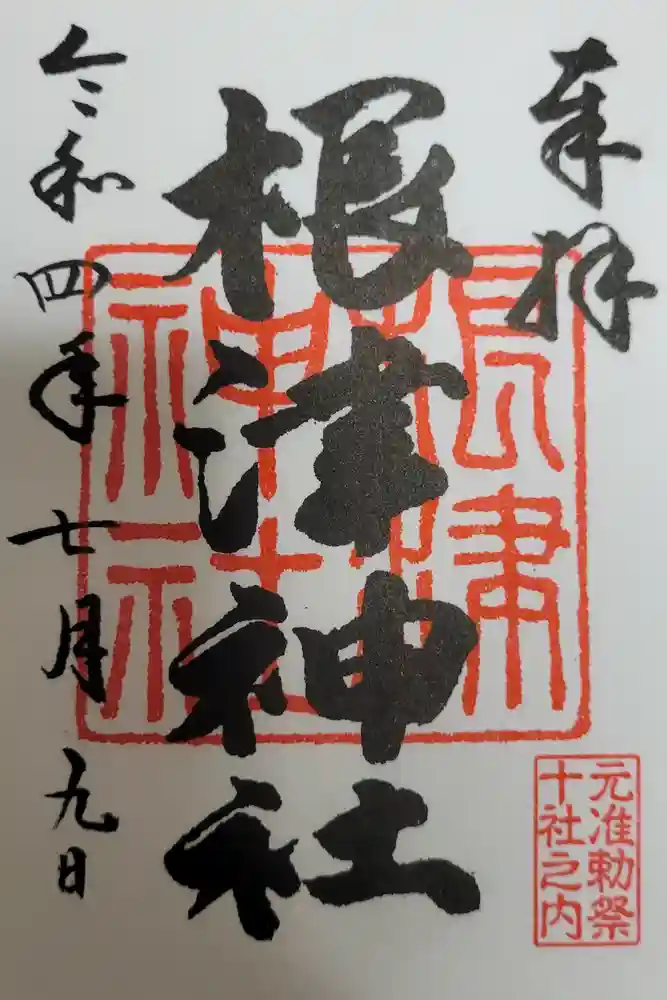 奉拝
根津神社
根津
神社
元准勅祭
十社之内
令和四年七月九日